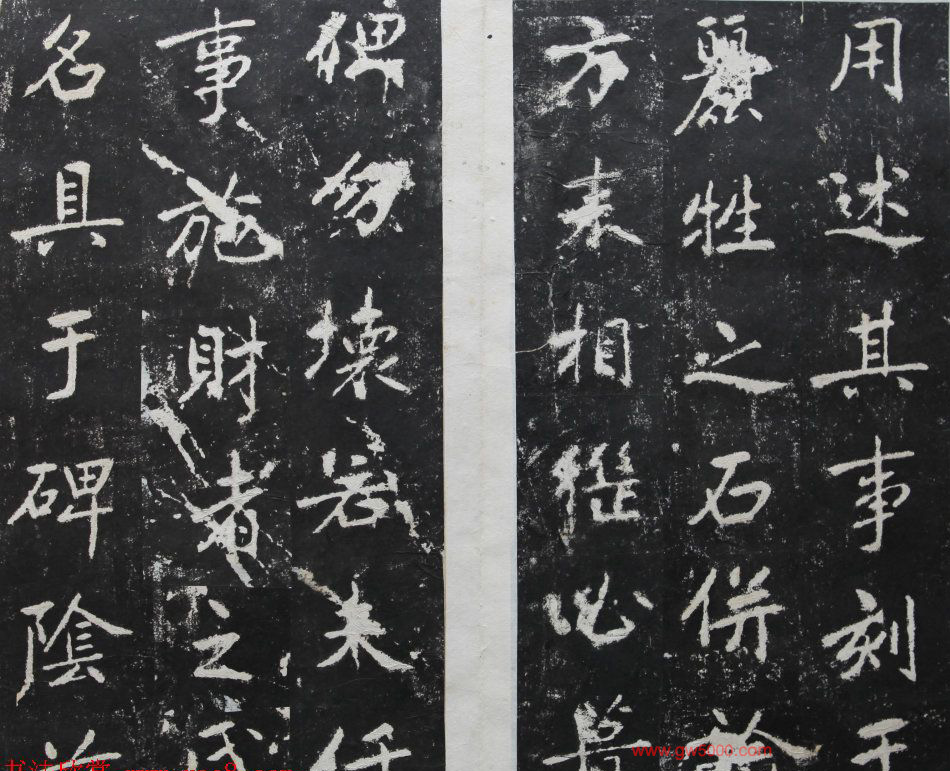 用述其事刻于
麗牲之石併
方来相繼必
俾勿壞若来任
事施財者之氏
名具于碑陰
www.gw5000.com
书法欣赏